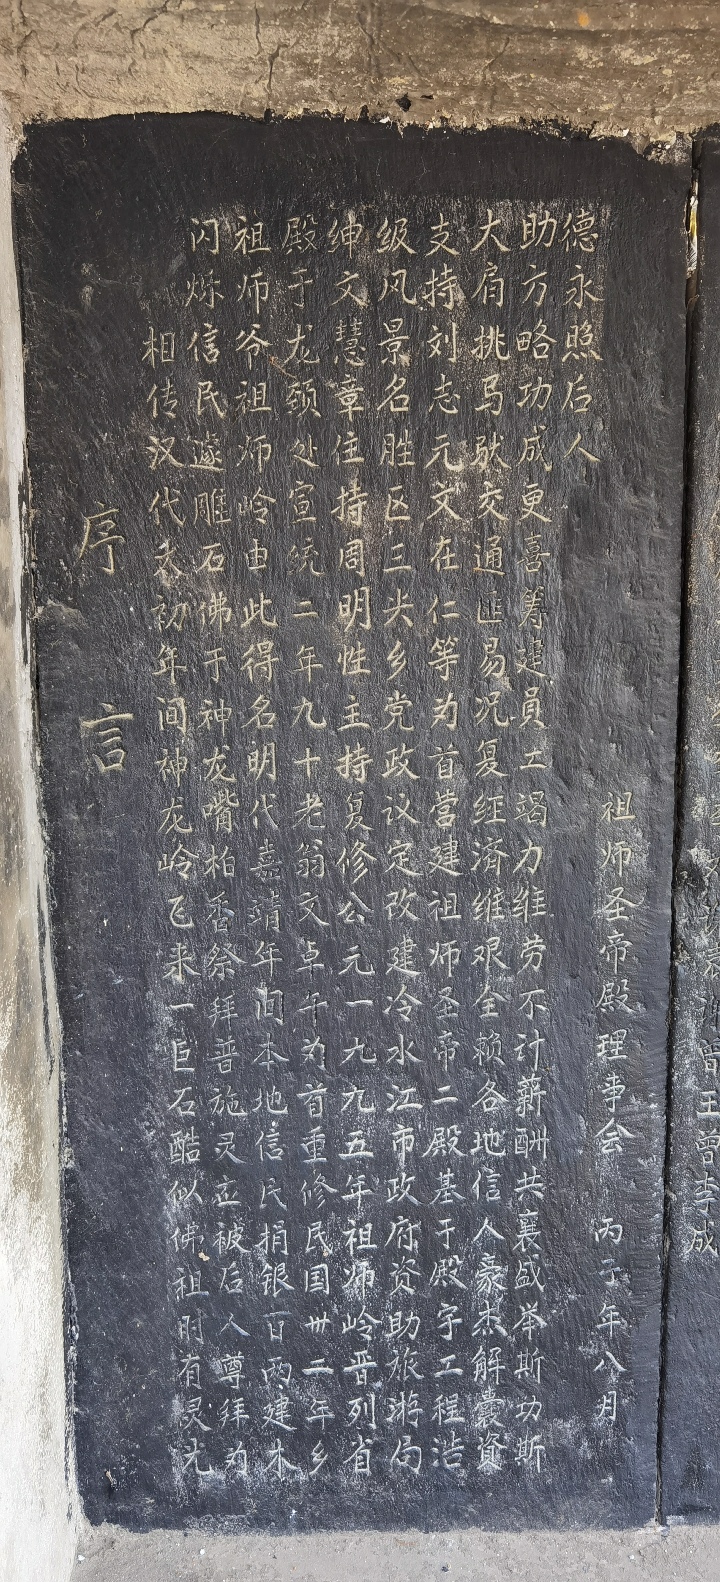 序言
相传汉代太初年间神龙岭飞来一巨石酷似佛祖时有灵光
闪烁信民遂雕石佛于神龙嘴柏香祭拜普施灵应被后人尊拜为
祖师爷祖师岭由此得名明代嘉靖年间本地信民捐银一百两建木
殿于龙頭处宣统二年九十老翁文卓午为首重修民国卅二年乡
绅文慧章住持周明性主持复修公元一九九五年祖师岭晋列省
级风景名胜区三尖乡党政议定改建冷水江市政府资助旅游局
支持刘志元文在仁等为首营建祖师圣帝二殿基于殿宇工程浩
大肩挑马驮交通匪易况复经济维艰全赖各地信人豪杰解囊资
助方略功成更喜筹建員工竭力维劳不计薪酬共襄盛举斯功斯
德永照后人
祖师圣帝殿理事会 丙子年八月
曾王曾李成